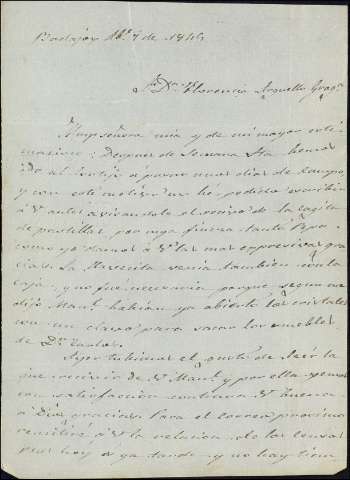 Badajoz Ab.l 7 de 1844
Sra Dña Florencia
Muy señora mia y de mi mayor esti
macion: Despues de Semana Sta hemos
ido al cortijo a pasar unos dias de campo,
y con este motivo no he podido escribir
á V. antes avisandola el recivo de la cajita
de pastillas por cuya fineza tanto Pepa
como yo damos á V. las mas expresivas gra
cias. La venia tambien en la
caja, y no fue necesaria porque segun me
dijo Man.l habian ya abierto los cristales
con un clavo para sacar los muebles
de Dn Carlos.
Ayer tubimos el gusto de leer la
que recivió de V. Man.l y por ella vemos
con satisfaccion continua V. buena
á Dios gracias. Para el correo procsimo
remitiré á V. la relacion de los
pues hoy es ya tarde y no hay tiem